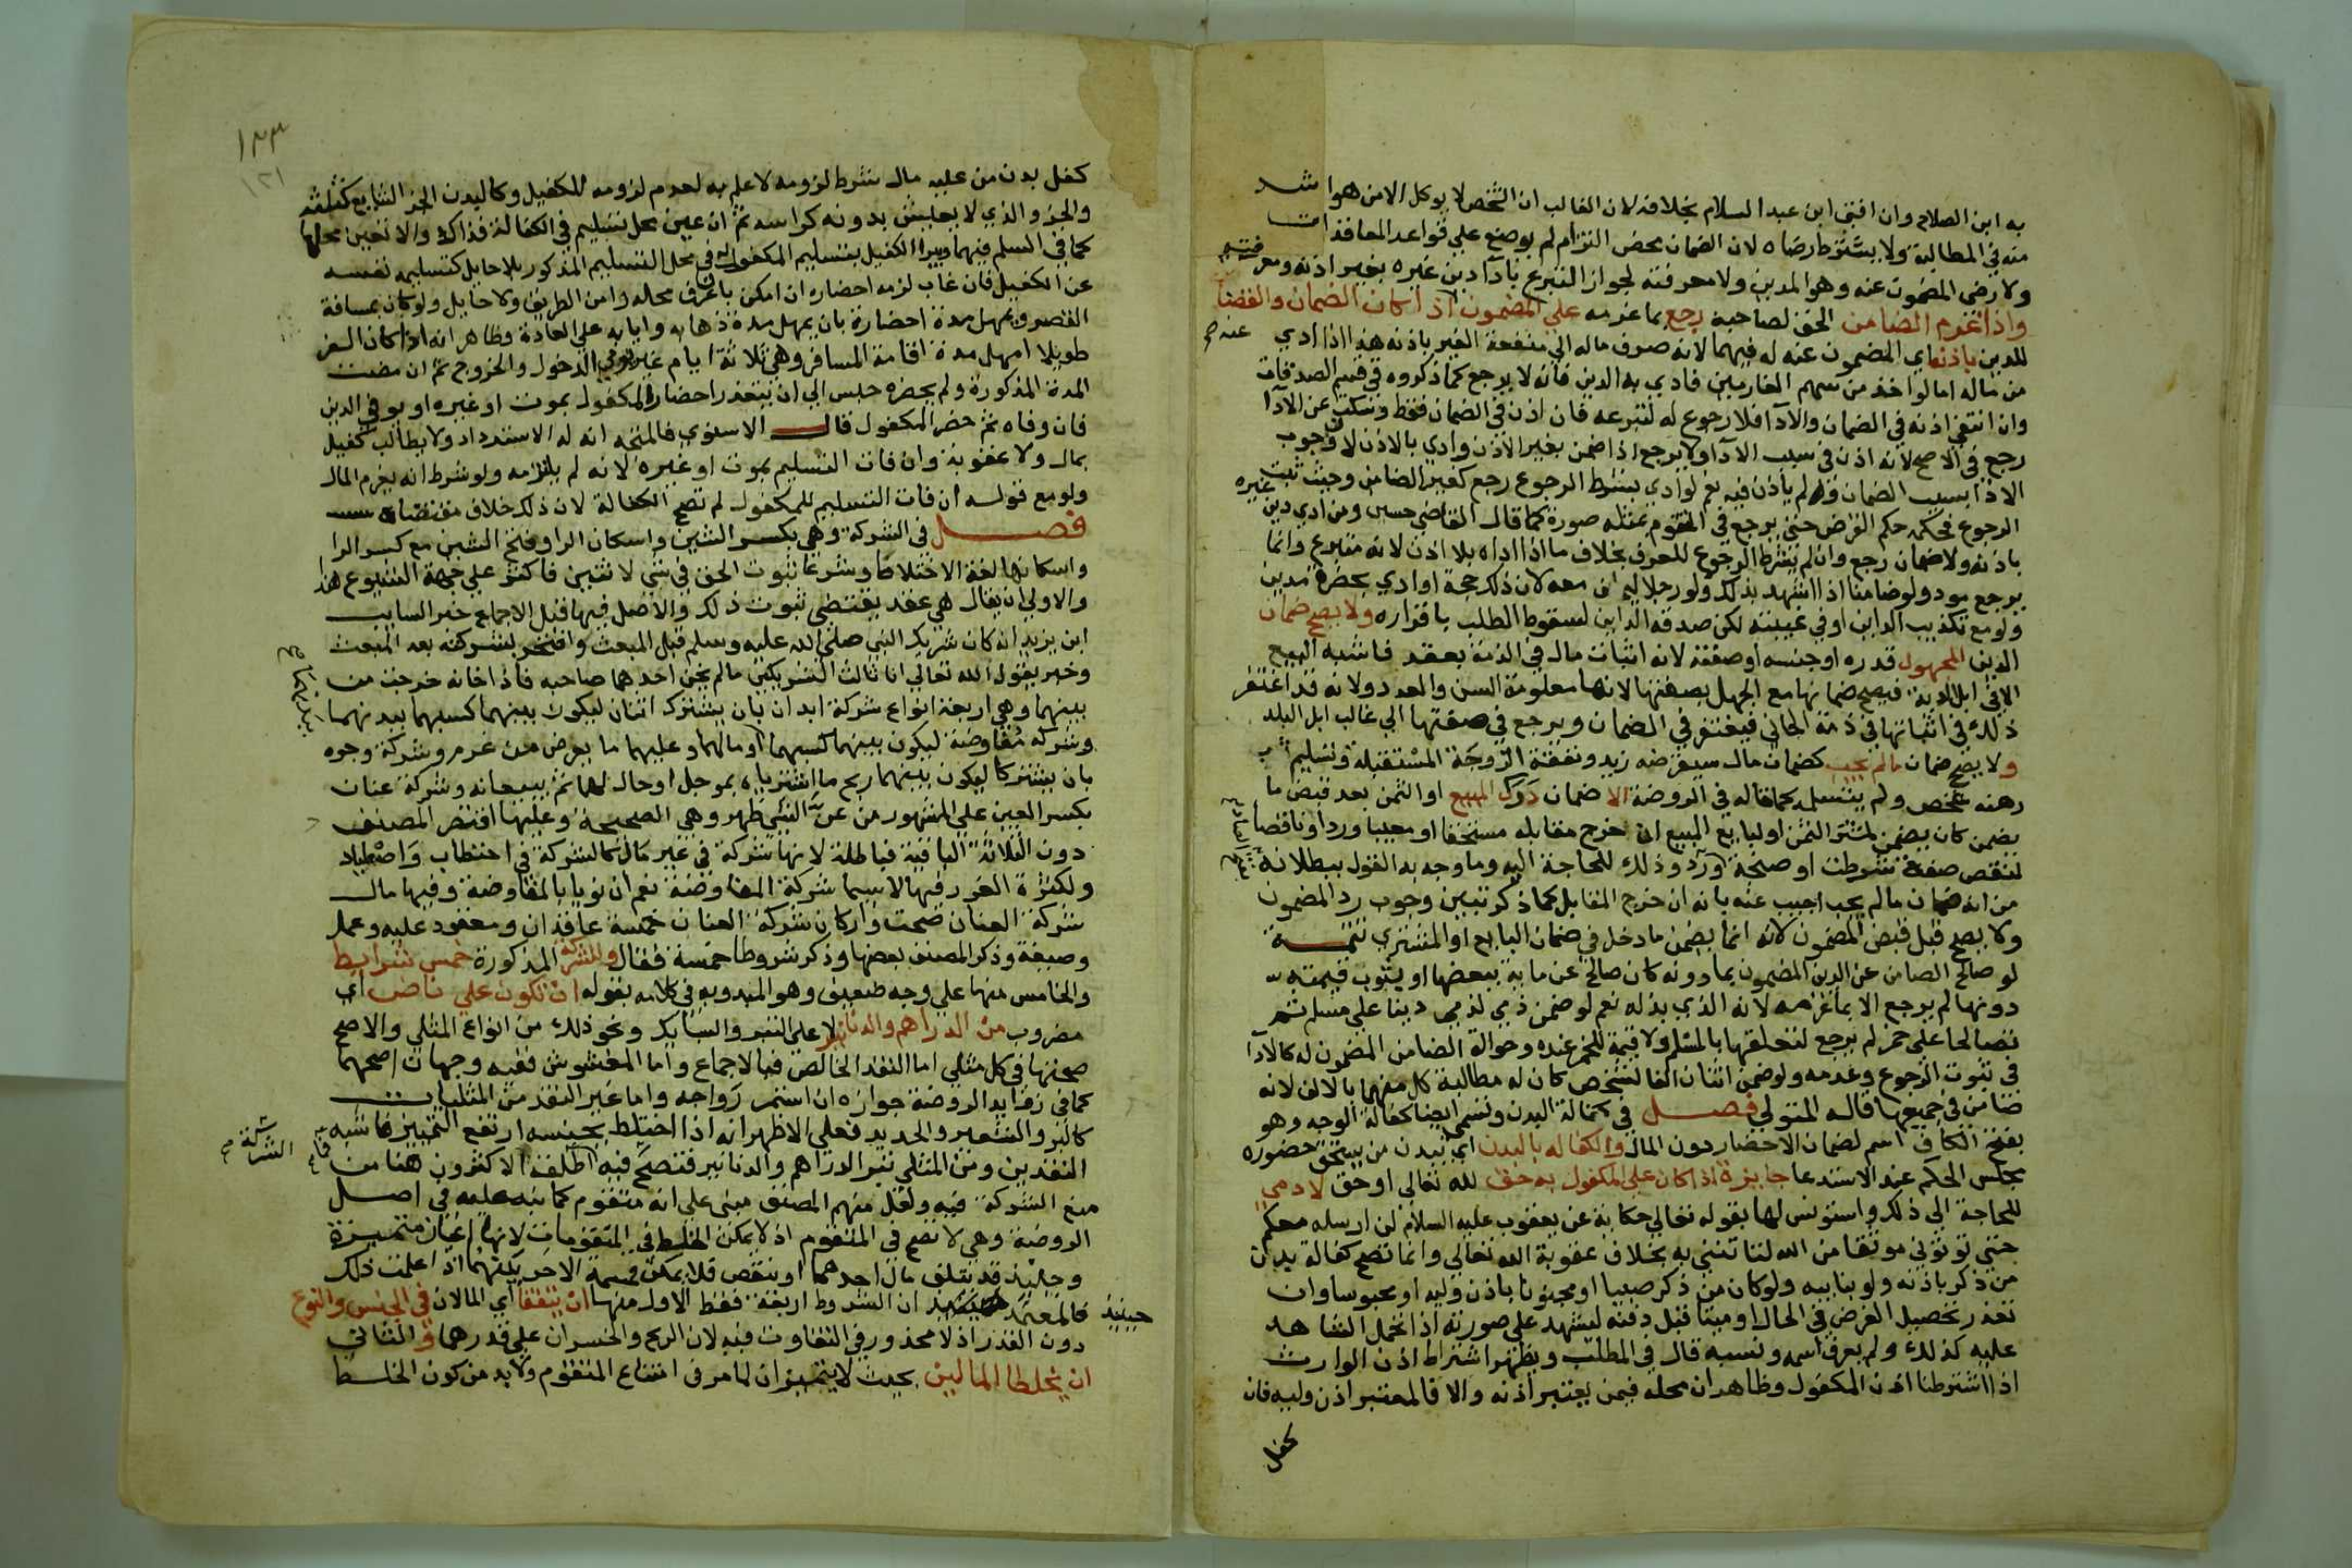 به ابن الصلاح وان افتى ابن عبد السلام بخلافه لان الغالب ان الشخص لا يوكل الا من هو اشد
منه في المطالبة ولا يشترط رضاه لان الضمان محض التزام لم يوضع على قواعد المعاقدات
ولا رضى المضمون عنه وهو المدين ولا معرفته لجواز التبرع باداء دين غيره بغير اذنه ومعرفته
واذا غرم الضامن الحق لصاحبه رجع بما غرمه على المضمون اذا كان الضمان والقضا
عنه صح
للدين باذنه اي المضمون عنه له فيهما لانه صرف ماله الى منفعة الغير باذنه هذا اذا ادى
من ماله اما لو اخذ من سهم الغارمين فادى به الدين فانه لا يرجع كما ذكروه في قسم الصدقات
وان انتفى اذنه في الضمان والادا فلا رجوع له لتبرعه فان اذن في الضمان فقط وسكت عن الادا
رجع في الاصح لانه اذن في سبب الادا ولا يرجع اذا ضمن بغير الاذن وادى بالاذن لان وجوب
الادا بسبب الضمان ولم ياذن فيه نعم لو ادى بشرط الرجوع رجع كغير الضامن وحيث ثبت
الرجوع فحكمه حكم القرض حتى يرجع في المتقوم بمثله صورة كما قال القاضي حسين ومن ادى دين غيره
باذنه ولا ضمان رجع وان لم يشترط الرجوع للعرف بخلاف ما اذا اداه بلا اذن لانه متبرع وانما
يرجع مود ولو ضامنا اذا اشهد بذلك ولو رجلا ليحلف معه لان ذلك حجة او ادى بحضرة مدين
ولو مع تكذيب الداين او في غيبته لكن صدقه الداين لسقوط الطلب باقراره ولا يصح ضمان
الدين المجهول قدره او جنسه او صفته لانه اثبات مال في الذمة بعقد فاشبه البيع
الا في ابل الدية فيصح ضمانها مع الجهل بصفتها لانها معلومة السن والعدد ولانه قد اغتفر
ذلك في اثباتها في ذمة الجاني فيغتفر في الضمان ويرجع في صفتها الى غالب ابل البلد
ولا يصح ضمان ما لم يجب كضمان مال سيقرضه زيد ونفقة الزوجة المستقبلة وتسليم ثوب
رهنه شخص ولم يتسلمه كما قاله في الروضة الا ضمان درك المبيع او الثمن بعد قبض ما
يضمن كان يضمن لمشتر الثمن او لبايع المبيع ان خرج مقابله مستحقا او معيبا ورد او ناقصا
لنقص صفة شرطت او صنجة ورد وذلك للحاجة اليه وما وجه به القول ببطلانه
من انه ضمان ما لم يجب اجيب عنه بانه ان خرج المقابل كما ذكر تبين وجوب رد المضمون
ولا يصح قبل قبض المضمون لانه انما يضمن ما دخل في ضمان البايع او المشتري تتمة
لو صالح الضامن عن الدين المضمون بما دونه كان صالح عن ماية ببعضها او بثوب قيمته
دونها لم يرجع الا بما غرمه لانه الذي بذله نعم لو ضمن ذمي لذمي دينا على مسلم ثم
تصالحا على خمر لم يرجع لتعلقها بالمسلم ولا قيمة للخمر عنده وحوالة الضامن المضمون له كالادا
في ثبوت الرجوع وعدمه ولو ضمن اثنان الفا لشخص كان له مطالبة كل منهما بالالف لانه
ضامن في جميعها قاله المتولي فصل في كفالة البدن وتسمى ايضا كفالة الوجه وهو
بفتح الكاف اسم لضمان الاحضار دون المال والكفالة بالبدن اي ببدن من يستحق حضوره
مجلس الحكم عند الاستدعا جايزة اذا كان على المكفول به حق لله تعالى او حق لادمي
للحاجة الى ذلك واستونس لها بقوله تعالى حكاية عن يعقوب عليه السلام لن ارسله معكم
حتى توتوني موثقا من الله لتاتنني به بخلاف عقوبة الله تعالى وانما تصح كفالة بدن
من ذكر باذنه ولو بنايبه ولو كان من ذكر صبيا او مجنونا باذن وليه او محبوسا وان
تعذر تحصيل الغرض في الحال او ميتا قبل دفنه ليشهد على صورته اذا تحمل الشاهد
عليه كذلك ولم يعرف اسمه ونسبه قال في المطلب ويظهر اشتراط اذن الوارث
اذا اشترطنا اذن المكفول وظاهر ان محله فيمن يعتبر اذنه والا فالمعتبر اذن وليه فان
كفل
١٢٣
١٢١
كفل بدن من عليه مال شرط لزومه لا علم به لعدم لزومه للكفيل وكالبدن الجز الشايع كثلثه
والجز الذي لا يعيش بدونه كراسه ثم ان عين محل تسليم في الكفالة فذاك والا تعين محلها
كما في السلم فيهما ويبرا الكفيل بتسليم المكفول له في محل التسليم المذكور بلا حايل كتسليمه نفسه
عن الكفيل فان غاب لزمه احضاره ان امكن بان عرف محله وامن الطريق ولا حايل ولو كان بمسافة
القصر ويمهل مدة احضاره بان يمهل مدة ذهابه وايابه على العادة وظاهر انه اذا كان السفر
طويلا امهل مدة اقامة المسافر وهي ثلاثة ايام غير يومي الدخول والخروج ثم ان مضت
المدة المذكورة ولم يحضره حبس الى ان يتعذر احضار المكفول بموت او غيره او يوفي الدين
فان وفاه ثم حضر المكفول قال الاسنوي فالمتجه ان له الاسترداد ولا يطالب كفيل
بمال ولا عقوبة وان فات التسليم بموت او غيره لانه لم يلتزمه ولو شرط انه يغرم المال
ولو مع قوله ان فات التسليم للمكفول لم تصح الكفالة لان ذلك خلاف مقتضاها
فصل في الشركة وهي بكسر الشين واسكان الرا وفتح الشين مع كسر الرا
واسكانها لغة الاختلاط وشرعا ثبوت الحق في شي لاثنين فاكثر على جهة الشيوع هذا
والاولى ان يقال هي عقد يقتضي ثبوت ذلك والاصل فيها قبل الاجماع خبر السايب
ابن يزيد انه كان شريك النبي صلى الله عليه وسلم قبل المبعث وافتخر بشركته بعد المبعث
وخبر يقول الله تعالى انا ثالث الشريكين ما لم يخن احدهما صاحبه فاذا خانه خرجت من
بينهما وهي اربعة انواع شركة ابدان بان يشترك اثنان ليكون بينهما كسبهما ببدنهما
وشركة مفاوضة ليكون بينهما كسبهما او مالهما وعليهما ما يعرض من غرم وشركة وجوه
بان يشتركا ليكون بينهما ربح ما اشترياه بموجل او حال لهما ثم يبيعانه وشركة عنان
بكسر العين على المشهور من عن الشي ظهر وهي الصحيحة وعليها اقتصر المصنف
دون الثلاثة الباقية فباطلة لانها شركة في غير مال كالشركة في احتطاب واصطياد
ولكثرة الغرر فيها لا سيما شركة المفاوضة نعم ان نويا بالمفاوضة وفيها مال
شركة العنان صحت واركان شركة العنان خمسة عاقدان ومعقود عليه وعمل
وصيغة وذكر المصنف بعضها وذكر شروطا خمسة فقال وللشركة المذكورة خمس شرايط
والخامس منها على وجه ضعيف وهو المبدو به في كلامه بقوله ان تكون على ناض اي
مضروب من الدراهم والدنانير لا على التبر والسبايك ونحو ذلك من انواع المثلي والاصح
صحتها في كل مثلي اما النقد الخالص فبالاجماع واما المغشوش ففيه وجهان اصحهما
كما في زوايد الروضة جوازه ان استمر رواجه واما غير النقد من المثليات
كالبر والشعير والحديد فعلى الاظهر انه اذا اختلط بجنسه ارتفع التمييز فاشبه
النقدين ومن المثلي تبر الدراهم والدنانير فتصح فيه اطلقه الاكثرون هنا من
الشركة صح
منع الشركة فيه ولعل منهم المصنف مبنى على انه متقوم كما نبه عليه في اصل
الروضة وهي لا تصح في المتقوم اذ لا يمكن الخلط في المتقومات لانها اعيان متميزة
وحينئذ قد يتلف مال احدهما او ينقص فلا يمكن قسمة الاخر بينهما اذا علمت ذلك
حينيذ
فالمعتمد ان الشروط اربعة فقط الاول منها ان يتفقا اي المالان في الجنس والنوع
دون القدر اذ لا محذور في التفاوت فيه لان الربح والخسران على قدرهما والثاني
ان يخلطا المالين بحيث لا يتميزان لما مر في امتناع المتقوم ولا بد من كون الخلط